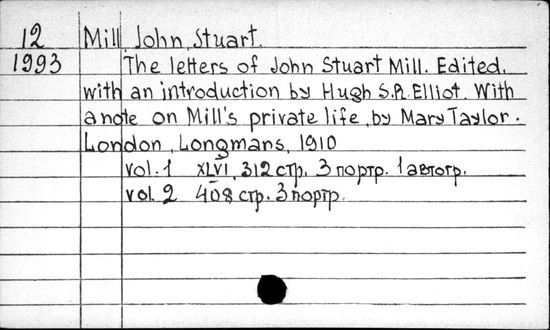 12 Mill, John, Stuart.
1993 The letters of John Stuart Mill. Edited.
with an introduction by Hugh S.R. Elliot. With
a note on Mill's private life, by Mary Taylor.
London, Longmans, 1910
vol. 1 XLVI, 312 стр. 3 портр. 1 автогр.
vol. 2 408 стр. 3 портр.